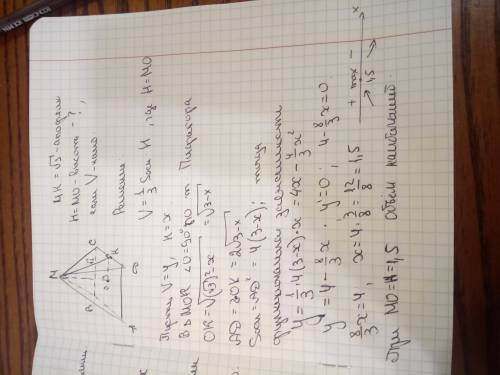 MK = √3 - апофема
H = MO - высота - ?,
если V - наиб
Решение
V = 1/3 Sосн H, где H = MO
Пусть V = y, H = x
В △ MOK ∠O = 90° по т Пифагора
OK = √((√3)² - x = √3-x
AD = 2OK = 2√3-x
Sосн = AD² = 4(3-x); тогда
функциональная зависимость
y = 1/3 · 4(3-x)·x = 4x - 4/3 x²
y' = 4 - 8/3 x; y' = 0; 4 - 8/3 x = 0
8/3 x = 4, x = 4 · 3/8 = 12/8 = 1,5
+ max - x
1,5
При MO = H = 1,5 объем наибольший.
M
B
C
K
O
D
A